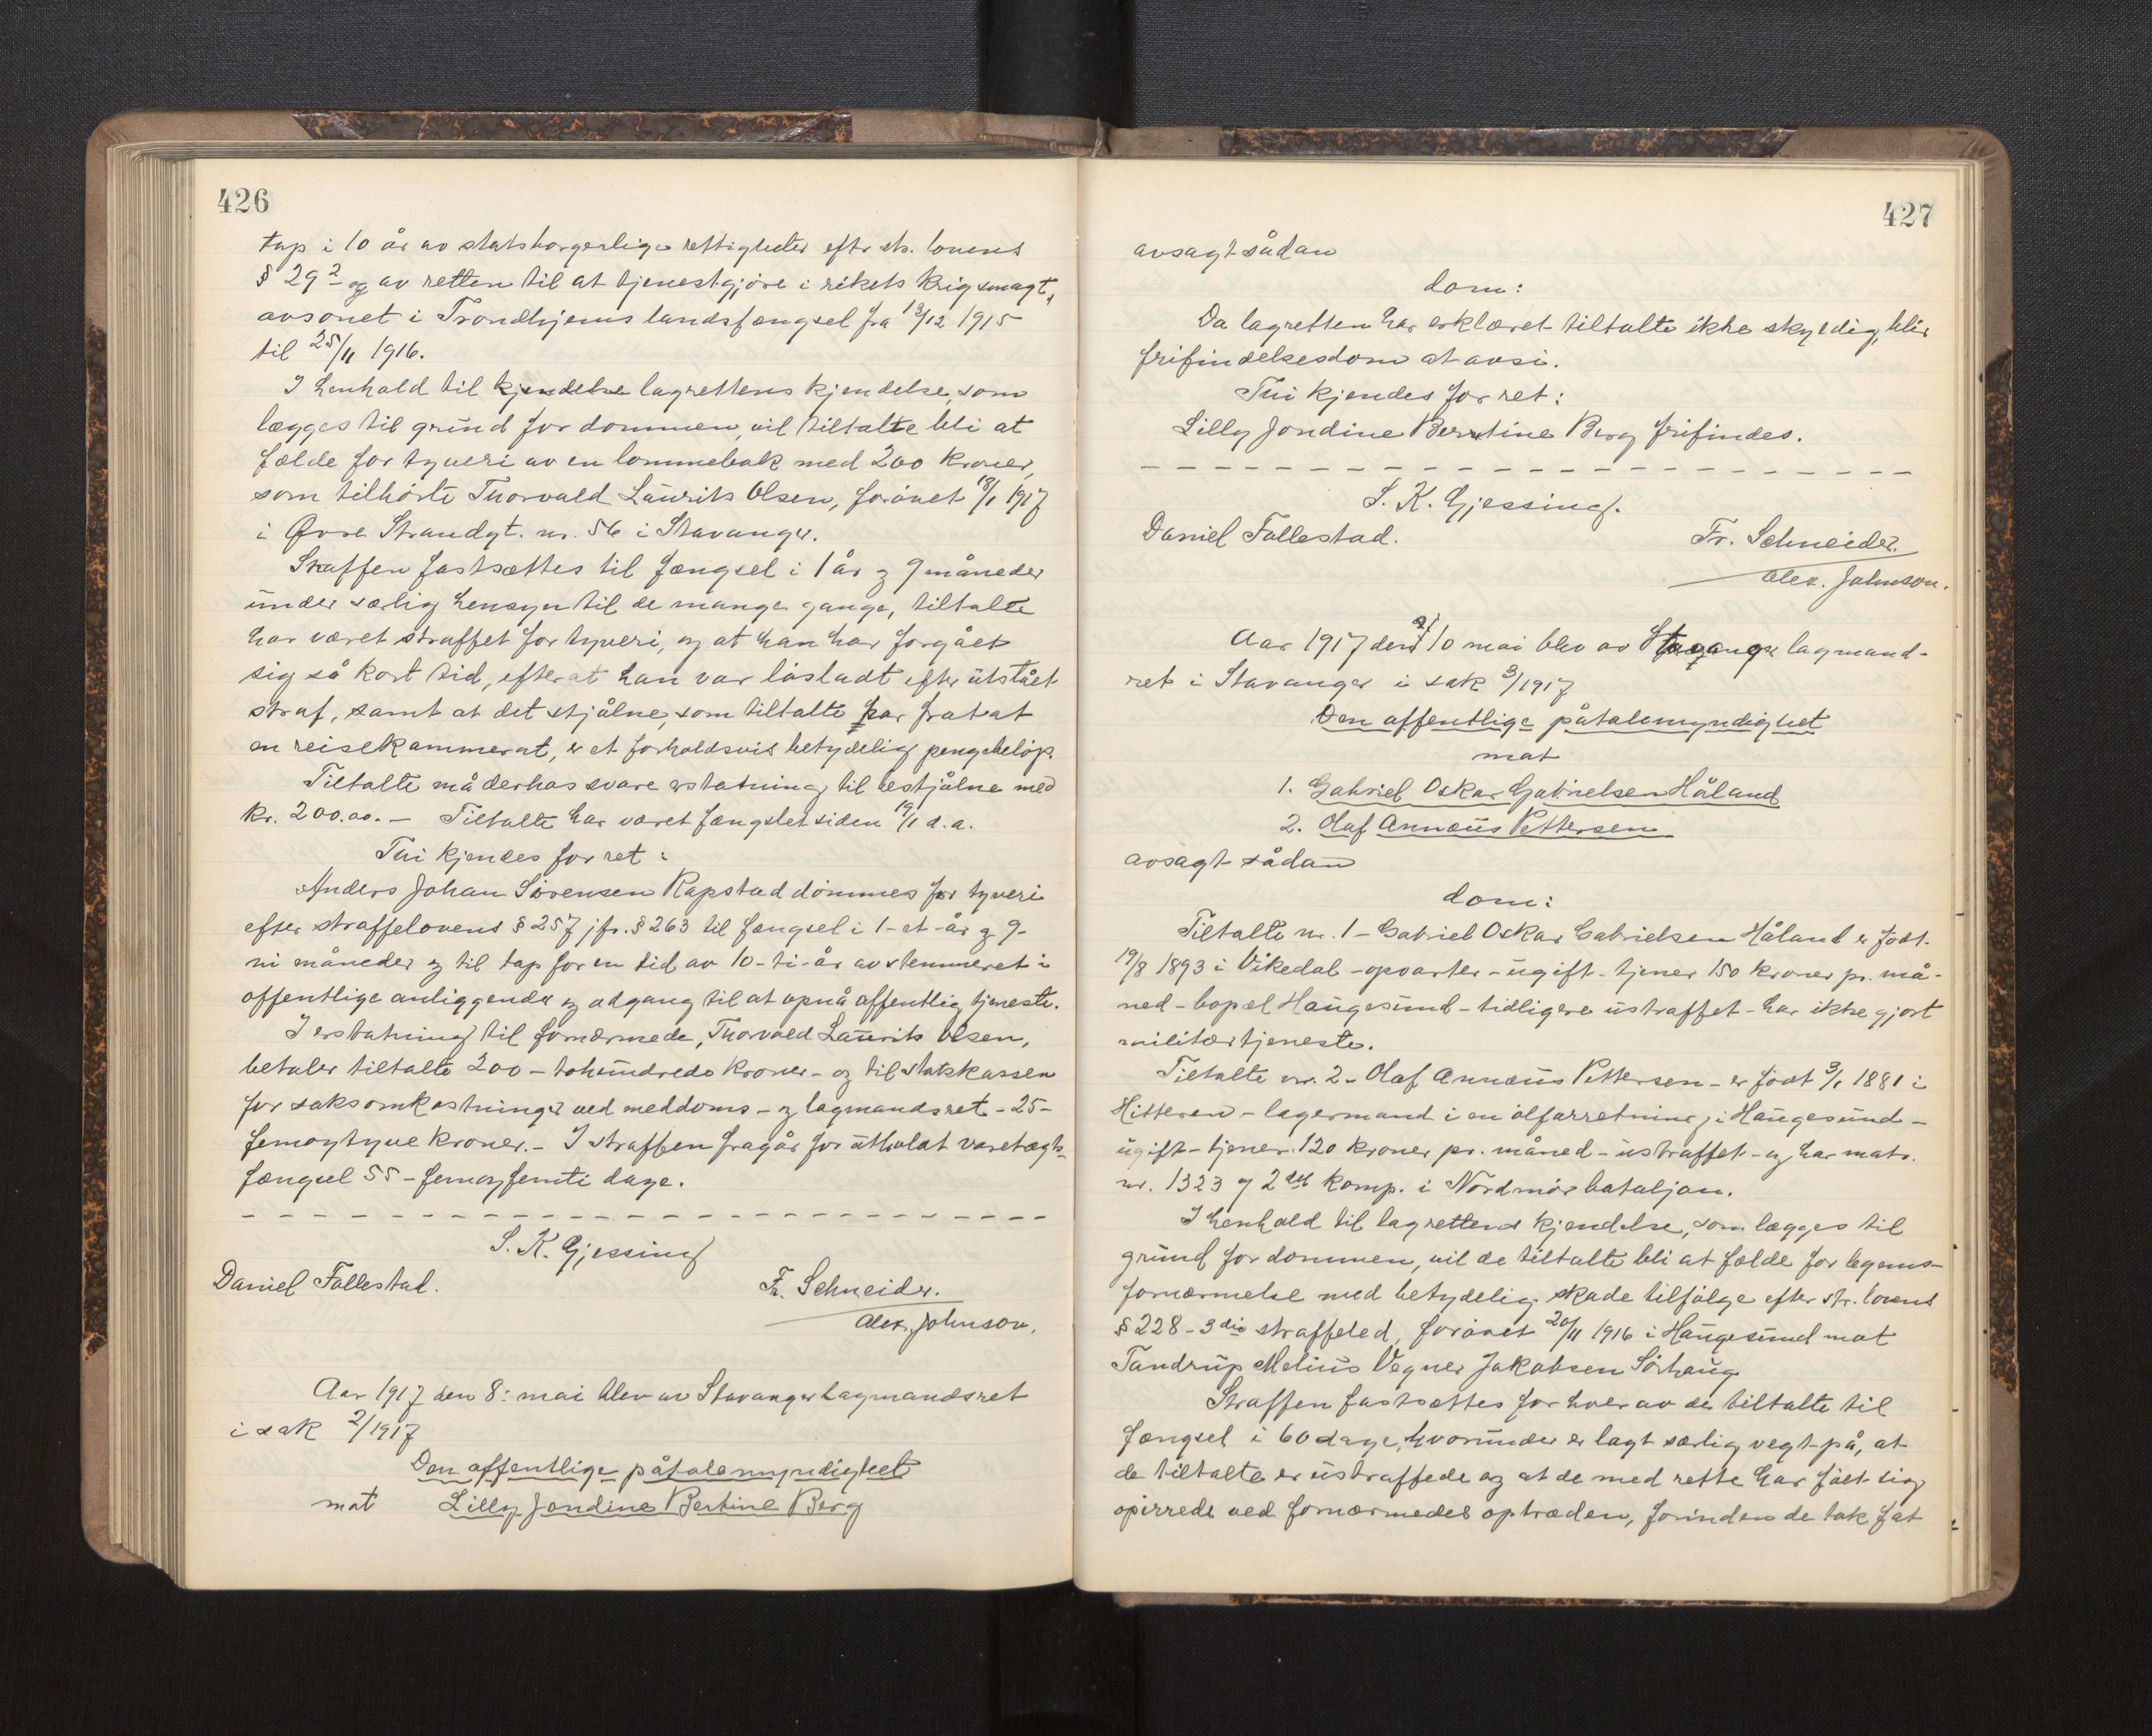 426
tap i 10 år av statsborgerlige rettigheter efter str. lovens
§ 29² og av retten til at tjenestgjøre i rikets krigsmagt,
avsonet i Trondhjems landsfængsel fra 13/12 1915
til 25/11 1916.
I henhold til kjendelse lagrettens kjendelse, som
lægges til grund for dommen, vil tiltalte bli at
fælde for tyveri av en lommebok med 200 kroner,
som tilhørte Thorvald Laurits Olsen, forøvet 18/1 1917
i Øvre Strandgt. nr. 56 i Stavanger.
Straffen fastsættes til fængsel i 1 år og 9 måneder
under særlig hensyn til de mange gange, tiltalte
har været straffet for tyveri, og at han har forgået
sig så kort tid, efterat han var løsladt efter utstået
straf, samt at det stjålne, som tiltalte har fratat
en reisekammerat, er et forholdsvis betydelig pengebeløp.
Tiltalte må derhos svare erstatning til bestjålne med
kr. 200.00. – Tiltalte har været fængslet siden 19/1 d.a.
Thi kjendes for ret:
Anders Johan Sørensen Rapstad dømmes for tyveri
efter straffelovens § 257 jfr. § 263 til fængsel i 1-et-år og 9-
ni måneder og til tap for en tid av 10-ti-år av stemmeret i
offentlige anliggender og adgang til at opnå offentlig tjeneste.
I erstatning til fornærmede, Thorvald Laurits Olsen,
betaler tiltalte 200 – tohundrede kroner – og til statskassen
for saksomkostninger ved meddoms- og lagmandsret – 25 –
femogtyve kroner. – I straffen fragår for utholdt varetægts-
fængsel 55 – femogfemti dage.
S. K. Gjessing
Daniel Follestad.
Fr. Schneider.
Alex. Johnson.
Aar 1917 den 8: mai blev av Stavanger lagmandsret
i sak 2/1917
Den offentlige påtalemyndighet
mot Lilly Jondine Bertine Berg
427
avsagt sådan
dom:
Da lagretten har erklæret tiltalte ikke skyldig, blir
frifindelsesdom at avsi.
Thi kjendes for ret:
Lilly Jondine Berntine Berg frifindes.
S. K. Gjessing.
Daniel Follestad.
Fr. Schneider.
Alex. Johnson.
Aar 1917 den 10 mai blev av Stavanger lagmand-
ret i Stavanger i sak 3/1917
Den offentlige påtalemyndighet
mot
1. Gabriel Oskar Gabrielsen Håland
2. Olaf Annæus Pettersen
avsagt sådan
dom:
Tiltalte nr. 1 – Gabriel Oskar Gabrielsen Håland er født
19/8 1893 i Vikedal – opvarter – ugift – tjener 150 kroner pr. må-
ned – bopæl Haugesund – tidligere ustraffet – har ikke gjort
militærtjeneste.
Tiltalte nr. 2 – Olaf Annæus Pettersen – er født 3/1 1881 i
Hitteren – lagermand i en ølforretning i Haugesund –
ugift – tjener 120 kroner pr. måned – ustraffet – og har matr.
nr. 1323 og 2det komp. i Nordmør bataljon.
I henhold til lagrettens kjendelse, som lægges til
grund for dommen, vil de tiltalte bli at fælde for legems-
fornærmelse med betydelig skade tilfølge efter str. lovens
§ 228 – 3die straffeled, forøvet 20/11 1916 i Haugesund mot
Tandrup Melius Vegner Jakobsen Sørhaug
Straffen fastsættes for hver av de tiltalte til
fængsel i 60 dage, hvorunder er lagt særlig vegt på, at
de tiltalte er ustraffede og at de med rette har følt sig
opirrede ved fornærmedes optræden, forinden de tok fat